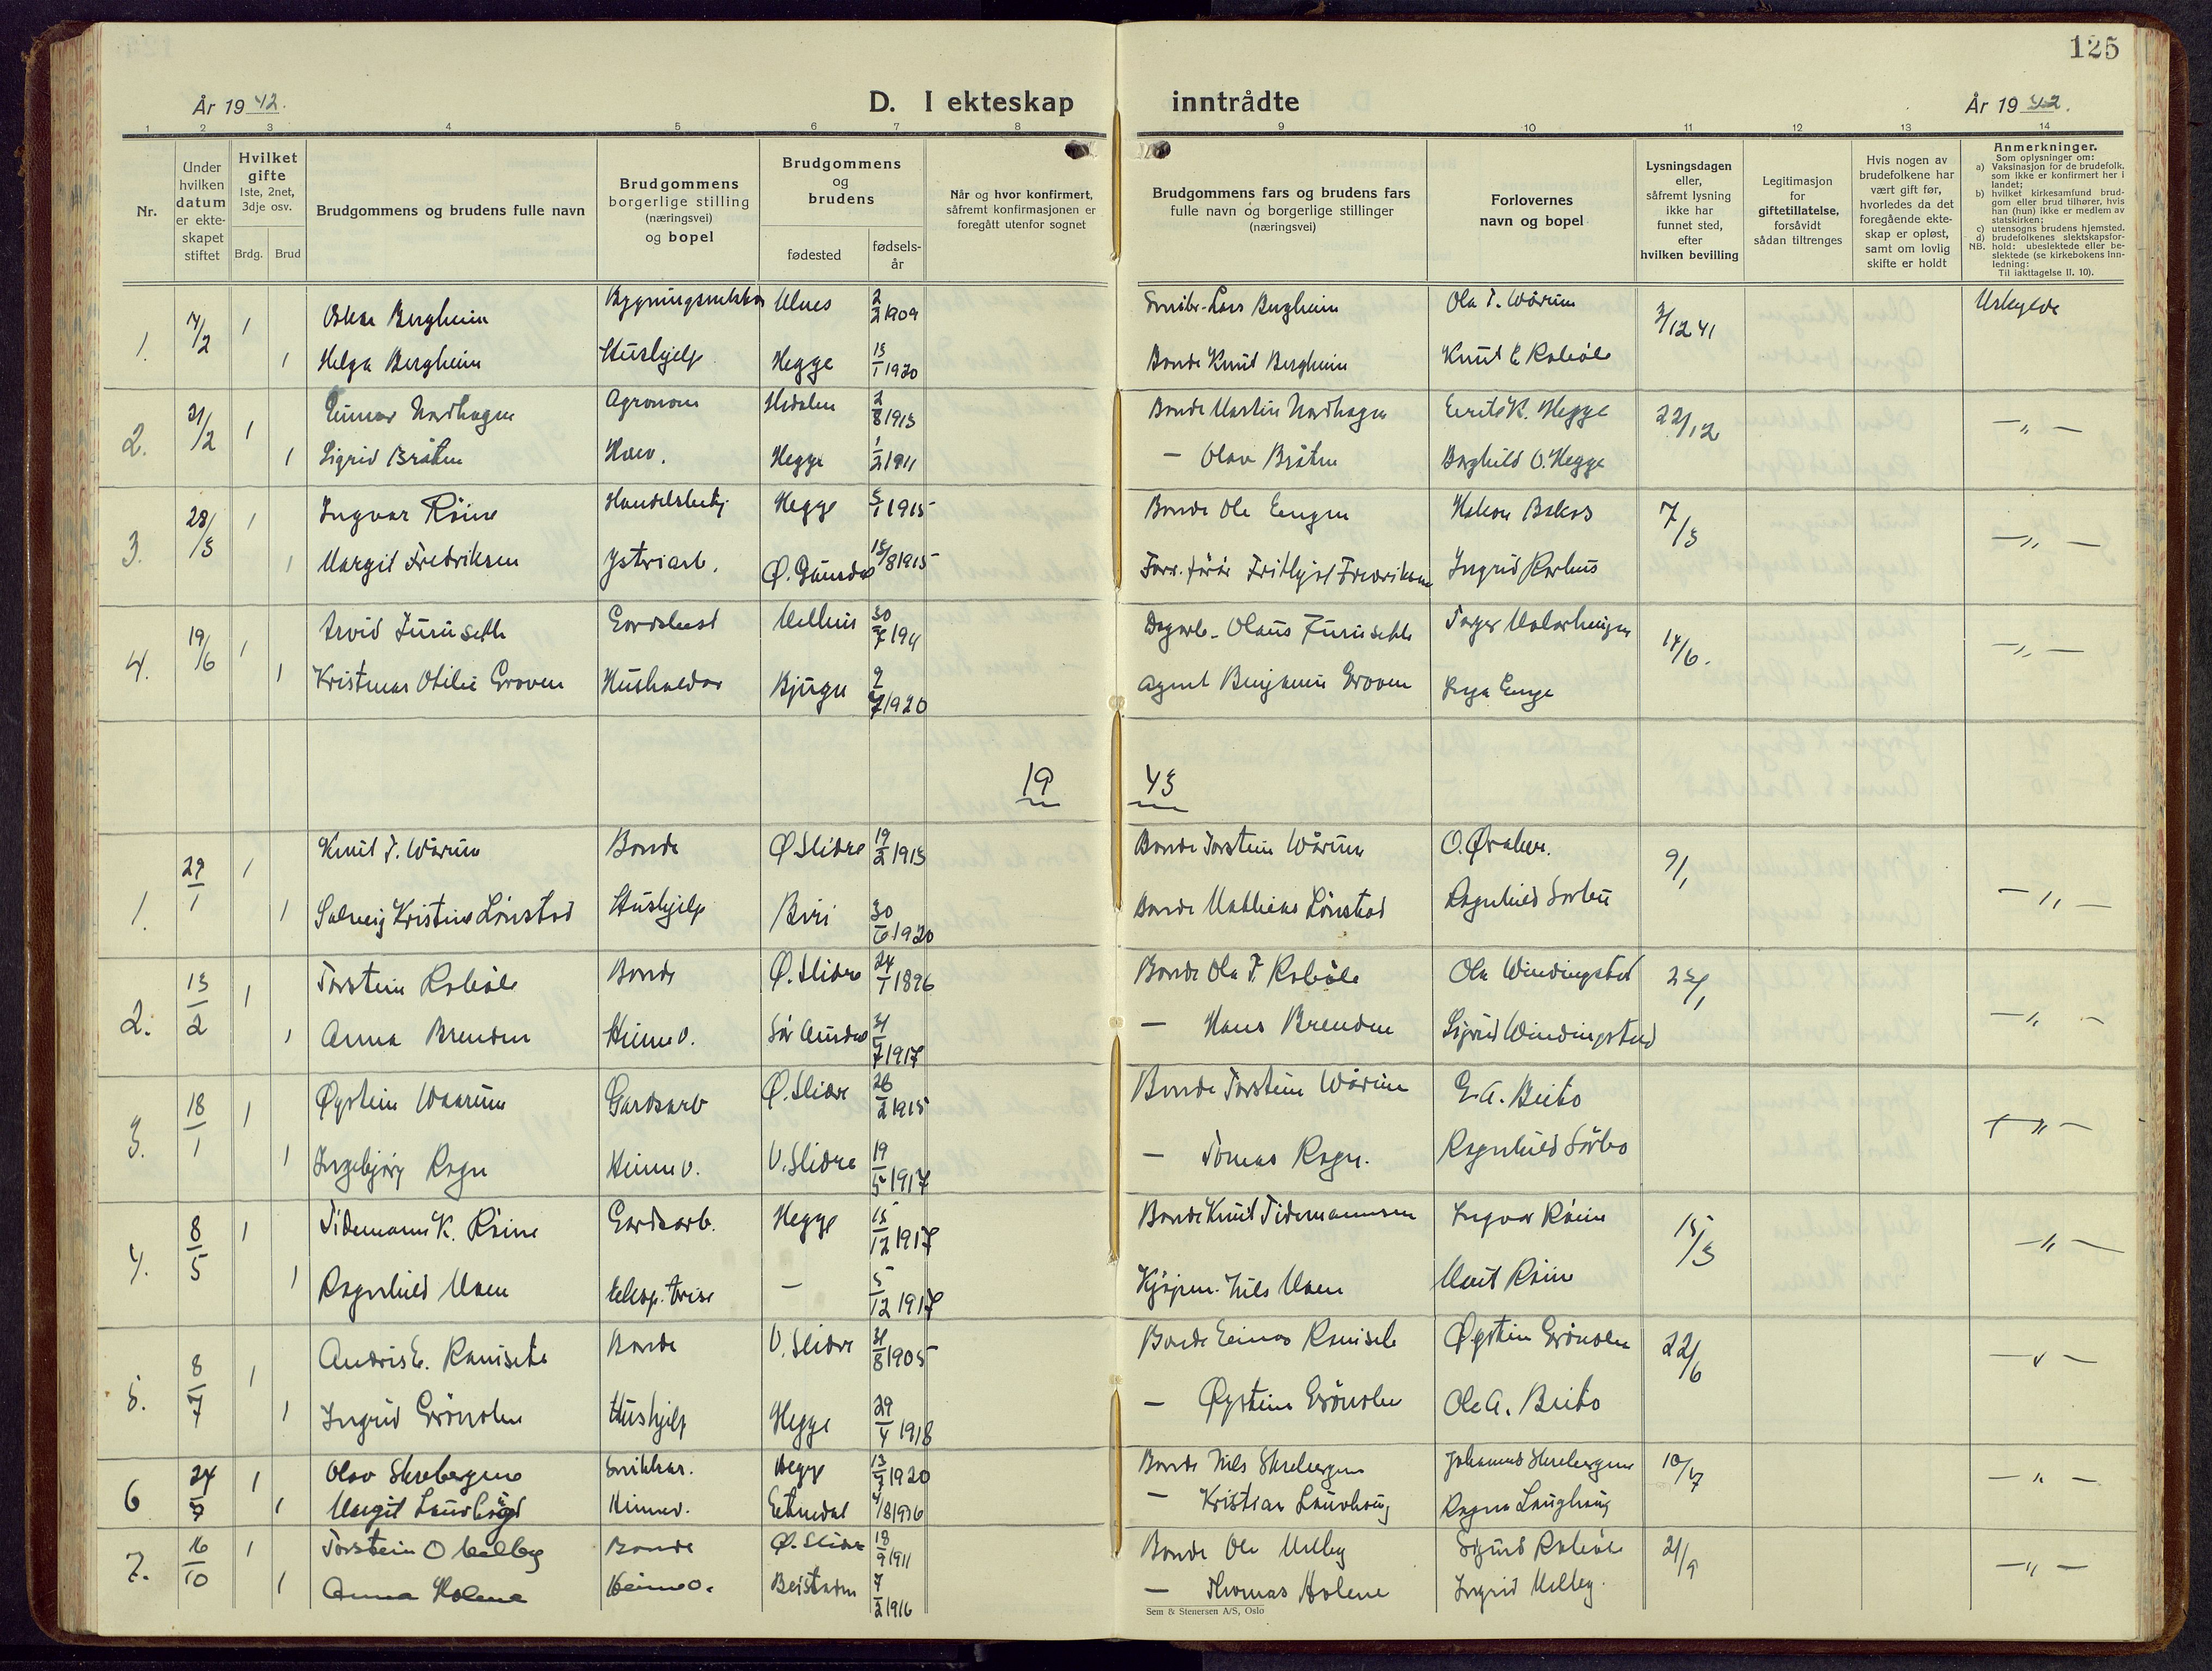 125
År 1942.
D. I ekteskap inntrådte
År 1942.
1 2 3 4 5 6 7 8 9 10 11 12 13 14
Nr.
Under hvilken datum er ekteskapet stiftet
Hvilket gifte 1ste, 2net, 3dje osv.
Brdg. Brud
Brudgommens og brudens fulle navn
Brudgommens borgerlige stilling (næringsvei) og bopel
Brudgommens og brudens
fødested
fødsels-år
Når og hvor konfirmert, såfremt konfirmasjonen er foregått utenfor sognet
Brudgommens fars og brudens fars fulle navn og borgerlige stillinger (næringsvei)
Forlovernes navn og bopel
Lysningsdagen eller, såfremt lysning ikke har funnet sted, efter hvilken bevilling
Legitimasjon for giftetillatelse, forsåvidt sådan tiltrenges
Hvis nogen av brudefolkene har vært gift før, hvorledes da det foregående ekteskap er opløst, samt om lovlig skifte er holdt
Anmerkninger.
Som oplysninger om:
a) Vaksinasjon for de brudefolk. som ikke er konfirmert her i landet;
b) hvilket kirkesamfund brudgom eller brud tilhører, hvis han (hun) ikke er medlem av statskirken;
c) utensogns brudens hjemsted.
d) brudefolkenes slektskapsforhold: ubeslektede eller beslektede (se kirkebokens innledning:
NB. Til iakttagelse II. 10).
1. 1 Bergheim Ulnes 2/2 1909 Lars Bergheim Ola T. Wårum 3/12 41
1 Helga Bergheim Hushjelp Hegge 1920 Bonde Knut Bergheim Knut E Robøle
2. 21/2 1 Einar Nordhagen Agronom Hedalen 2/8 1913 Bonde Martin Nordhagen Hegge 22/12 — „ —
1 Sigrid Bråten Hegge 1/2 1911 — Olav Bråten Borghild O. Hegge
3. 28/3 1 Ingvar Røine Hegge 5/1 1915 Bonde Ole Engen Hakon 7/3 — „ —
1 Margit Fredriksen Ø. Gausdal 15/8 1915 Fritjof Fredriksen Ingrid
4. 19/6 1 Arvid Furuseth 30/7 Olaus Furuseth 14/6. — „ —
1 Otilie Groven Bjugn 1920 Agent Benjamin Groven Enge
1943
1. 29/1 1 Knut T. Wårum Bonde Ø Slidre 19/2 1913 Bonde Torstein Wårum O. Øraker. 9/1 — „ —
1 Solveig Kristine Lønstad Hushjelp Biri 30/6 1920 Bonde Mathias Lønstad Ragnhild Sørbu
2. 13/2 1 Torstein Robøle Bonde Ø. Slidre 24/1 1896 Bonde Ola T. Robøle Ola Windingstad — „ —
1 Anna Brenden Heimev. Sør Aurdal 31/7 1917 — Hans Brenden Sigrid Windingstad
3. 18/1 1 Øystein Waarum Gardsarb Ø. Slidre 26/2 1915 Bonde Torstein Wårum E. A. Beito — „ —
1 Ingebjørg Rogn Heimev. V. Slidre 19/5 1917 — Tomas Rogn. Ragnhild Sørbo
4. 8/5 1 Tidemann K. Røine Gardsarb. Hegge 15/12 1917 Bonde Knut Tidemannsen Ingvar Røine 15/3 — „ —
1 Ragnhild Moen — 5/12 1917 Kjøpm. Nils Moen Marit Røine
5. 8/7 1 Andris E. Ranisete Bonde V. Slidre 31/8 1905 Bonde Einar Ranisete Øystein Grønolen 22/6 — „ —
1 Ingrid Grønolen Hushjelp Hegge 29/4 1918 — Øystein Grønolen Ole A. Beito
6 24/7 1 Olav Skrebergene Hegge 13/5 1920 Bonde Nils Skrebergene Johannes Skrebergene 10/7 — „ —
1 Margit Lauvhaug Heimev. Etnedal — Kristian Lauvhaug Ragna Laughaug
7. 16/10 1 Torstein O Melby Bonde Ø. Slidre 18/9 1911 Bonde Ole Melby Sigurd Robøle 21/9 — „ —
1 Anna Holene Heimev. Beistaden 7/2 1916 — Thomas Holene Ingrid Melby.
Sem & Stenersen A/S, Oslo